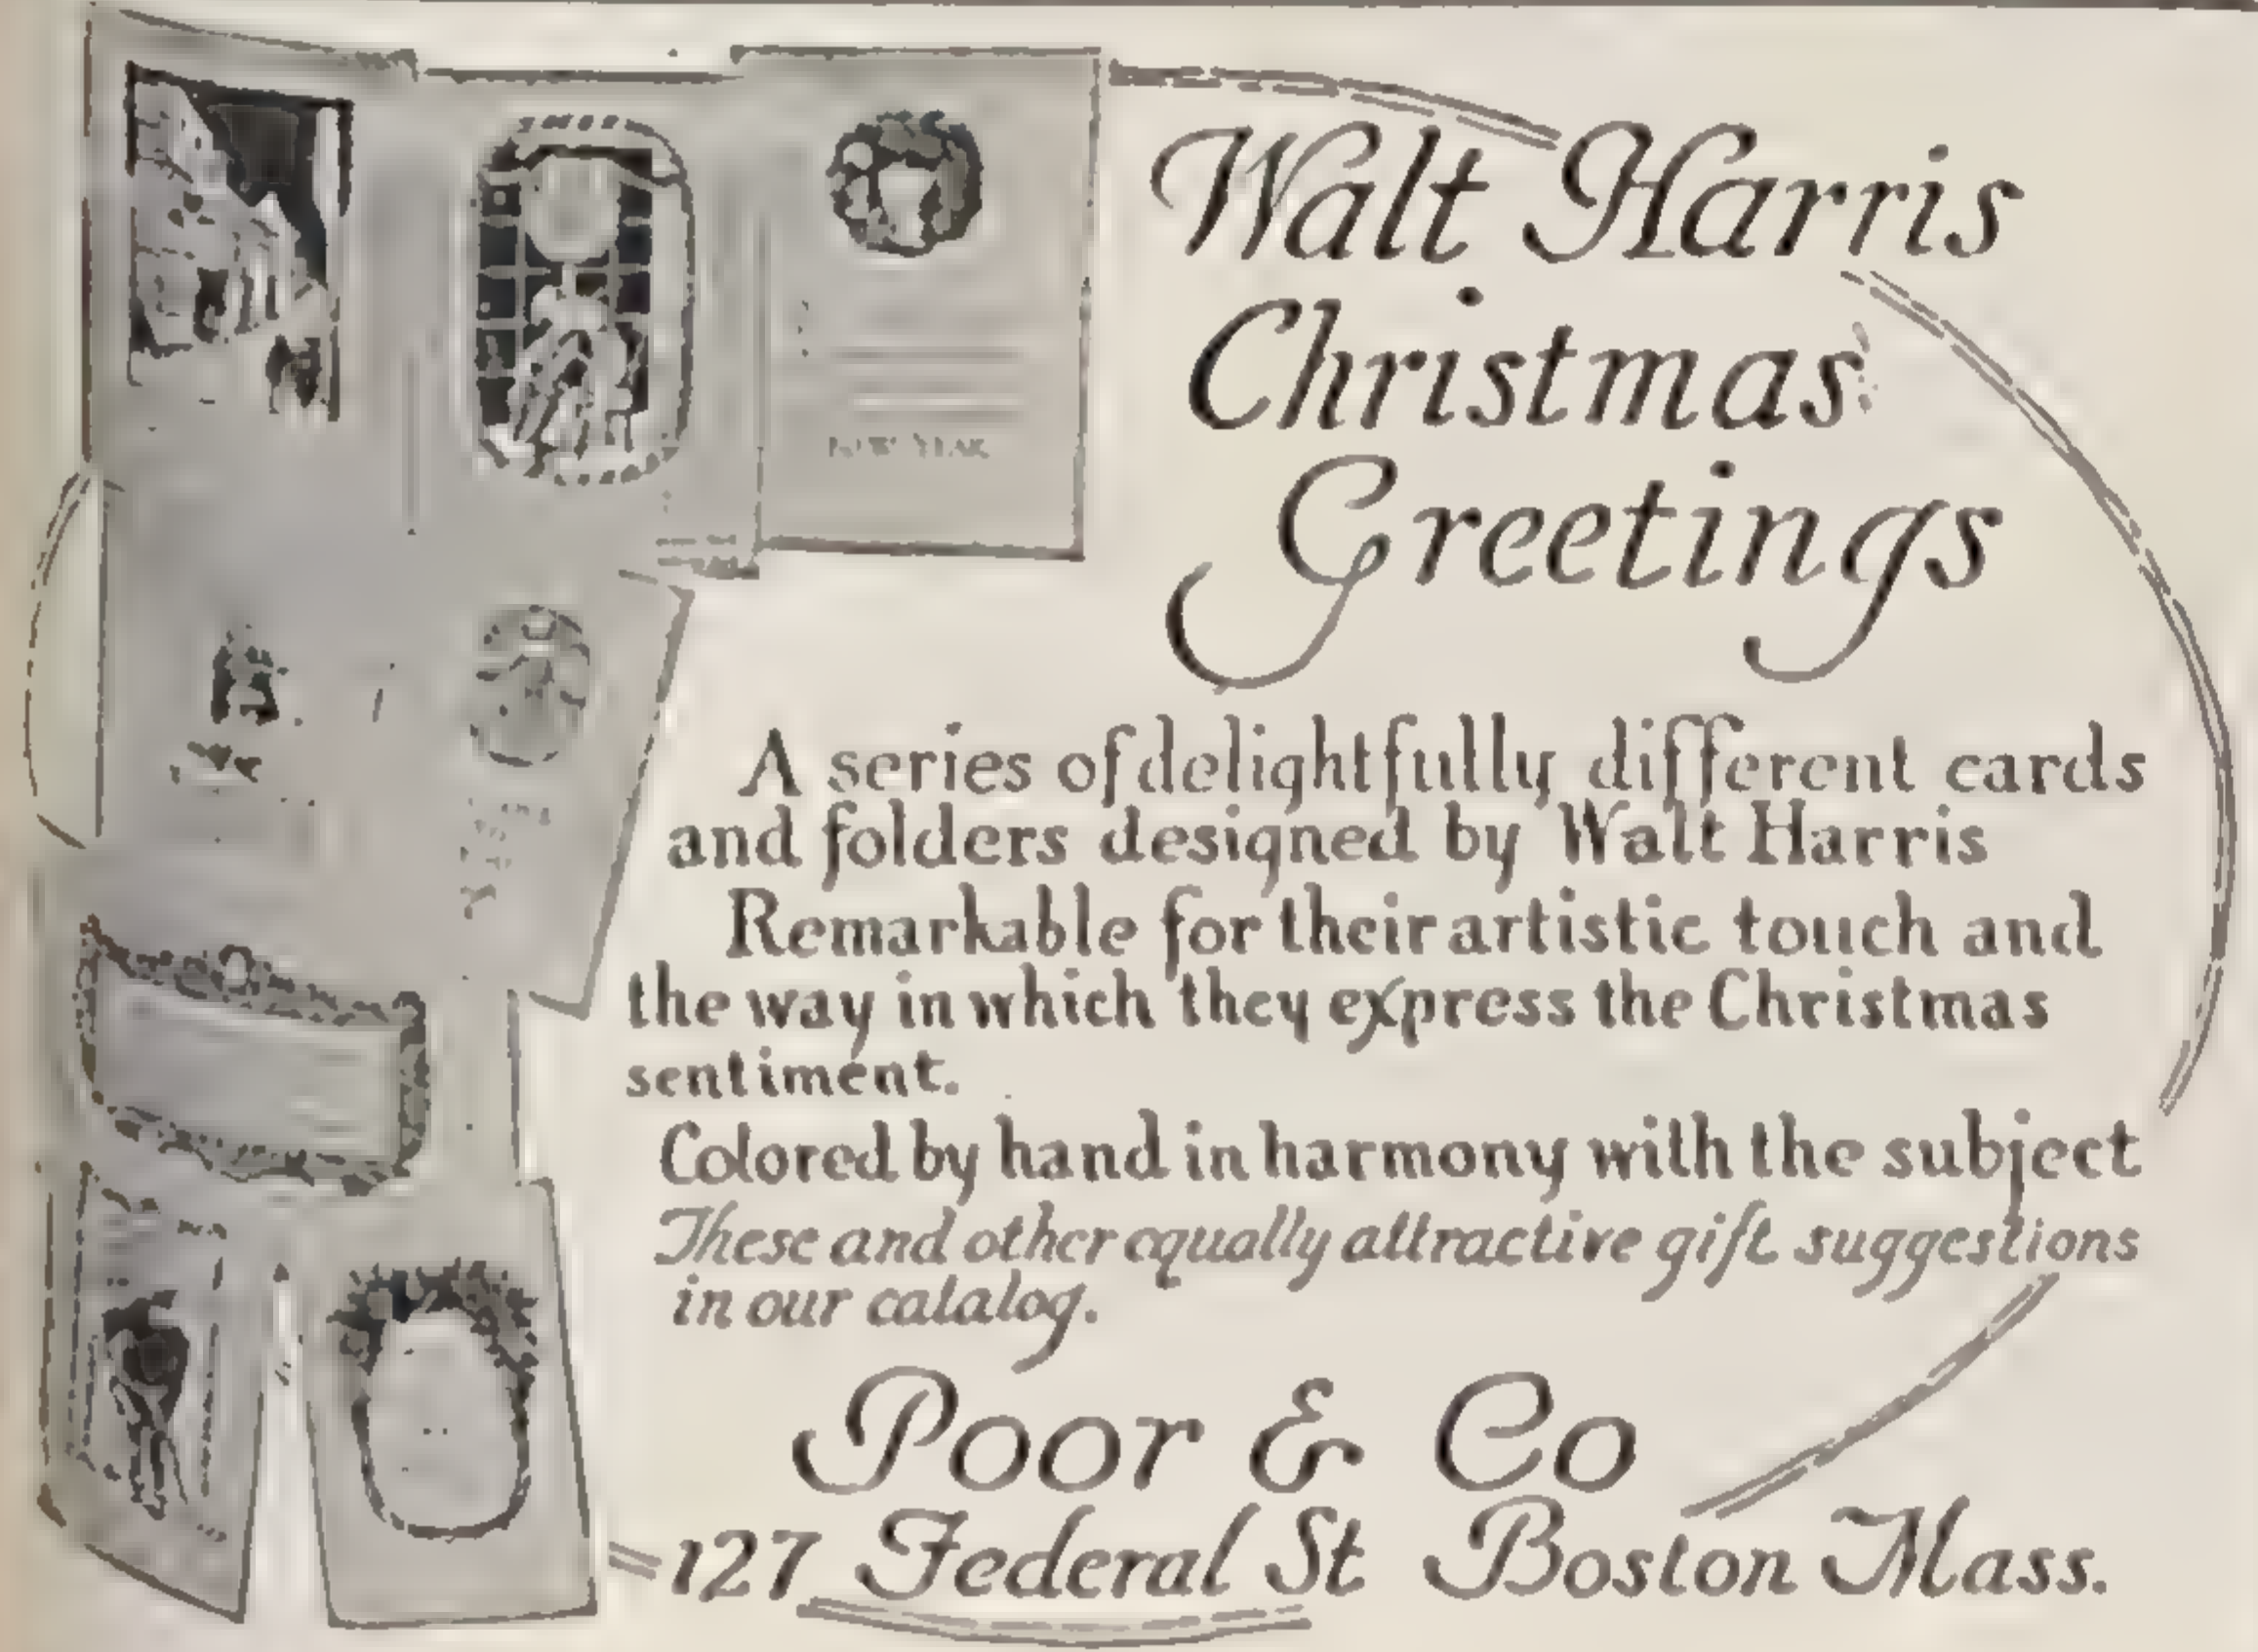 NEW YEAR
Walt Harris
Christmas
Greetings
A series of delightfully different cards
and folders designed by Walt Harris
Remarkable for their artistic touch and
the way in which they express the Christmas
sentiment.
Colored by hand in harmony with the subject
These and other equally attractive gift suggestions
in our catalog.
Poor & Co
127 Federal St Boston Mass.